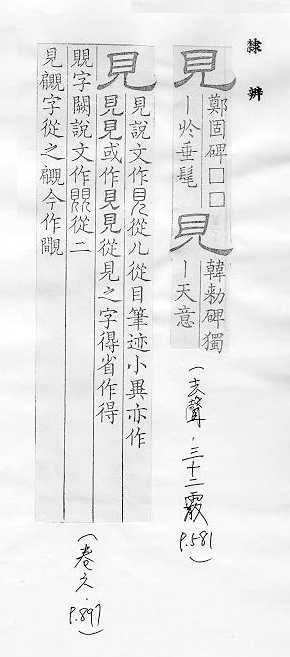 隸辨
見 鄭固碑□□
丨於垂髦
見 韓勑碑獨
丨天意
(去聲.三十二霰 P.581)
見 見說文作見從儿從目筆迹小異亦作
見見或作見見從見之字得省作得
字闕說文作從二
見字從之今作
(卷六.P.897)